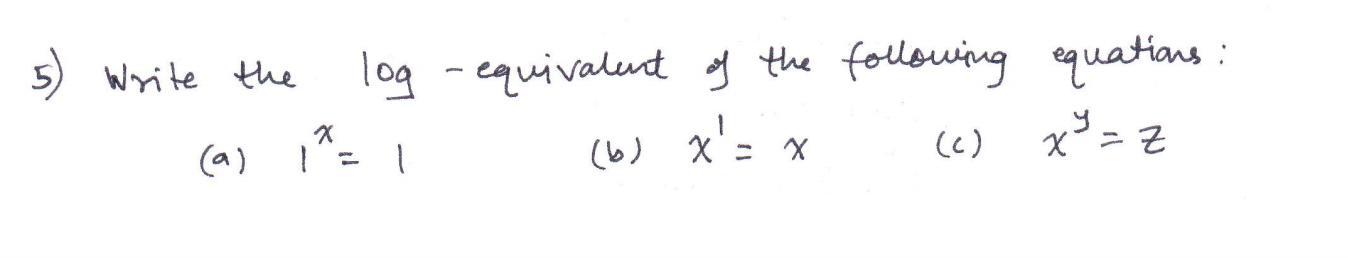 5) Write the log-equivalent of the following equations:
(a) 1^x = 1 (b) x^1 = x (c) x^y = z